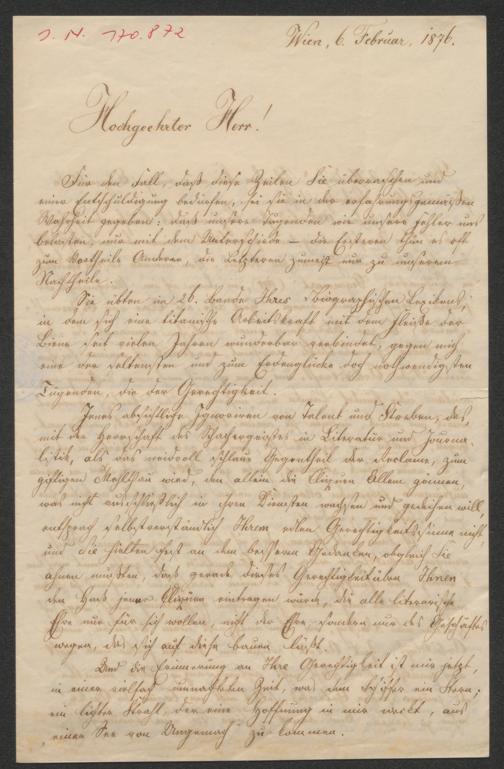 J. N. 170.872
Wien, 6. Februar, 1876.
Hochgeehrter Herr!
Für den Fall, daß diese Zeilen Sie überraschen und
einer Entschuldigung bedürfen, sei sie in der erfahrungsgemäßen
Wahrheit gegeben: daß unsere Tugenden wie unsere Fehler uns
belasten, nur mit dem Unterschiede – die Ersteren thun es oft
zum Vortheile Anderer, die Letzteren zumeist nur zu unserem
Nachtheile.
Sie übten im 26. Bande Ihres „Biographischen Lexikons",
in dem sich eine titanische Arbeitskraft mit dem Fleiße der
Biene seit vielen Jahren wunderbar verbindet, gegen mich
eine der seltensten und zum Erdenglücke doch nothwendigsten
Tugenden, die der Gerechtigkeit.
Jenes absichtliche Ignoriren von Talent und Streben, das,
mit der Herrschaft des Schachergeistes in Literatur und Journa-
listik, als das neidvoll schlaue Gegentheil der Reclame, zum
giftigen Mehlthau wird, den allein die Cliquen Allem gönnen,
was nicht ausschließlich in ihren Diensten wachsen und gedeihen will,
entsprach selbstverständlich Ihrem edlen Gerechtigkeitssinne nicht
und Sie hielten fest an dem besseren Gedanken, obgleich Sie
ahnen mußten, daß gerade dieses Gerechtigkeitüben Ihnen
den Haß jener Cliquen eintragen würde, die alle literarische
Ehre nur für sich wollen, nicht der Ehre, sondern nur des Geschäftes
wegen, das sich auf diese bauen läßt.
Und die Erinnerung an Ihre Gerechtigkeit ist mir jetzt,
in einer vielfach umnachteten Zeit, was dem Schiffer ein Stern;
ein lichter Strahl, der eine Hoffnung in mir weckt, aus
einem See von Ungemach zu kommen.